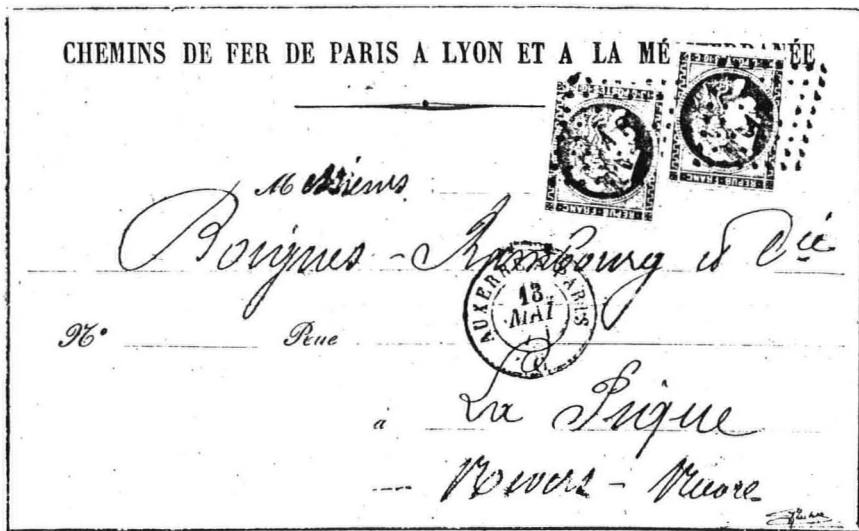 CHEMINS DE FER DE PARIS A LYON ET A LA MÉ RRANÉE
POSTES
REPUB·FRANC·
REPUB·FRANC·
Messieurs
Boigues-Rambourg et Cie
AUXERRE PARIS
13
MAI
N° Rue
à La Pique
Nevers - Nièvre